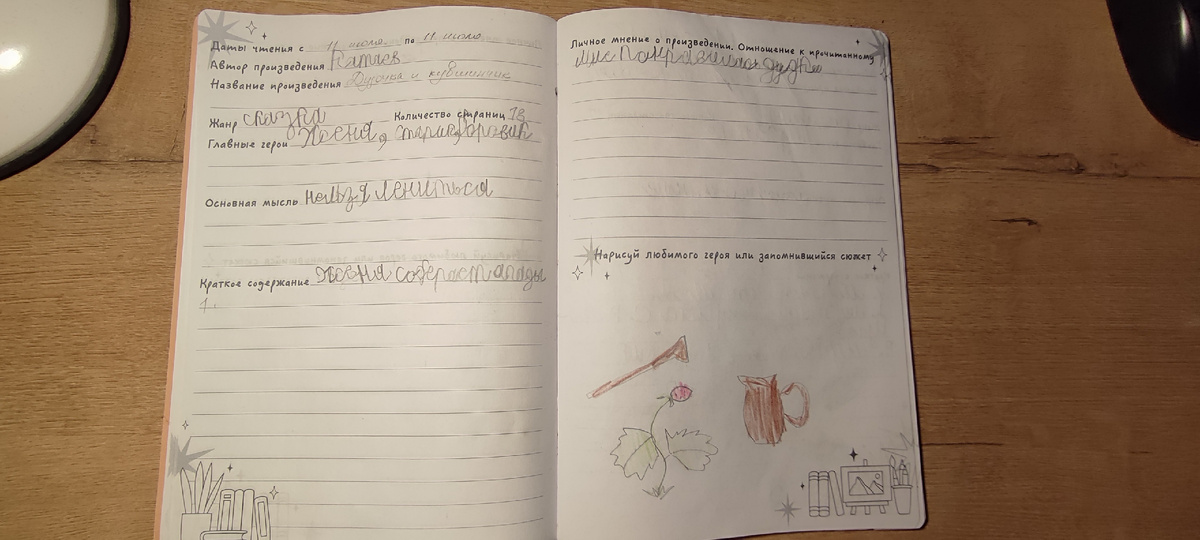 Даты чтения с 11 июля по 11 июля
Автор произведения Катаев
Название произведения Дудочка и кувшинчик
Жанр сказка Количество страниц 13
Главные герои Женя, старик боровик
Основная мысль нельзя лениться
Краткое содержание Женя собераст ягоды
1.
Личное мнение о произведении. Отношение к прочитанному
мне понравилась
Нарисуй любимого героя или запомнившийся сюжет